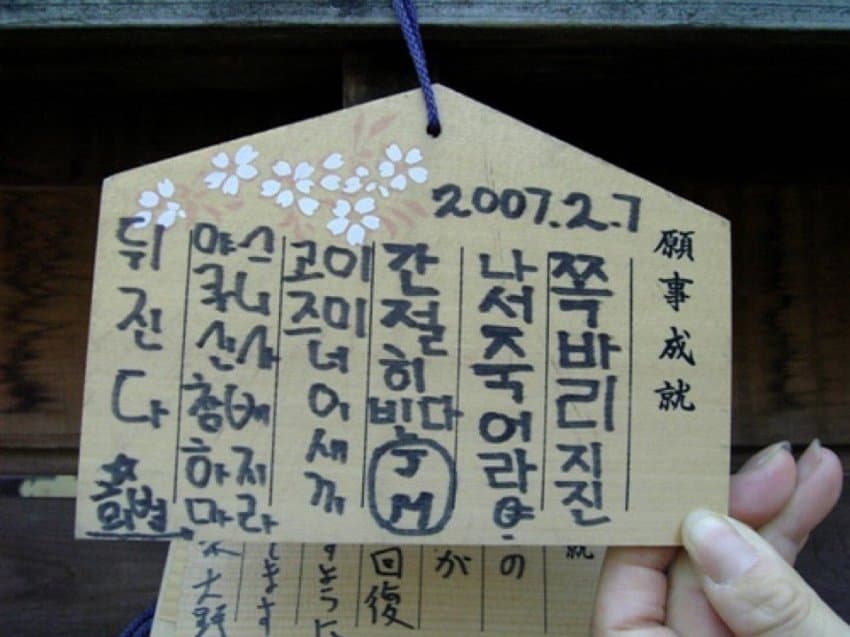 願事成就
2007.2.7
쪽바리지진
나서죽어라
간절히빈다 JM
고이즈미너이새끼
야스쿠니신사참배하지마라
뒤진다
就
の
が
回復
すように
ます
大野